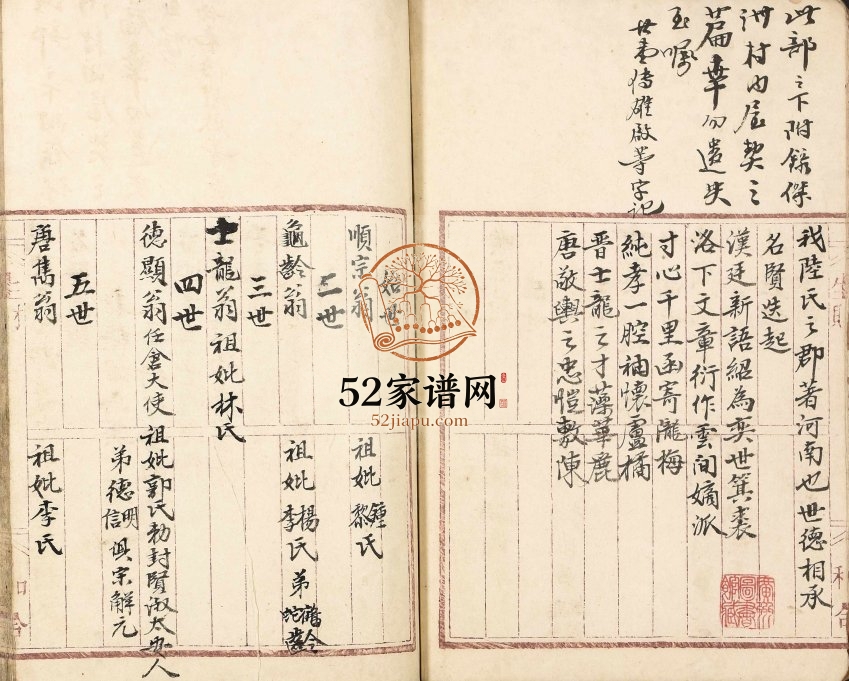 此部之下附録傑
洲村内屋契之
篇幸勿遺失
至囑
世
我陸氏之郡著河南也世德相承
名賢迭起
漢廷新語紹為奕世箕裘
洛下文章衍作雲間嫡派
寸心千里函寄隴梅
純孝一腔袖懷盧橘
晋士龍之才藻華麗
唐敬輿之忠愷敷陳
始世
順宗翁 祖妣鍾黎氏
二世
龜齡翁 祖妣楊李氏 弟鶴齡蛇齡
三世
士龍翁祖妣林氏
四世
德顯翁任倉大使 祖妣郭氏勅封賢淑太安人
弟德明信俱宗解元
五世
唐雋翁 祖妣李氏
52家谱网
52jiapu.com